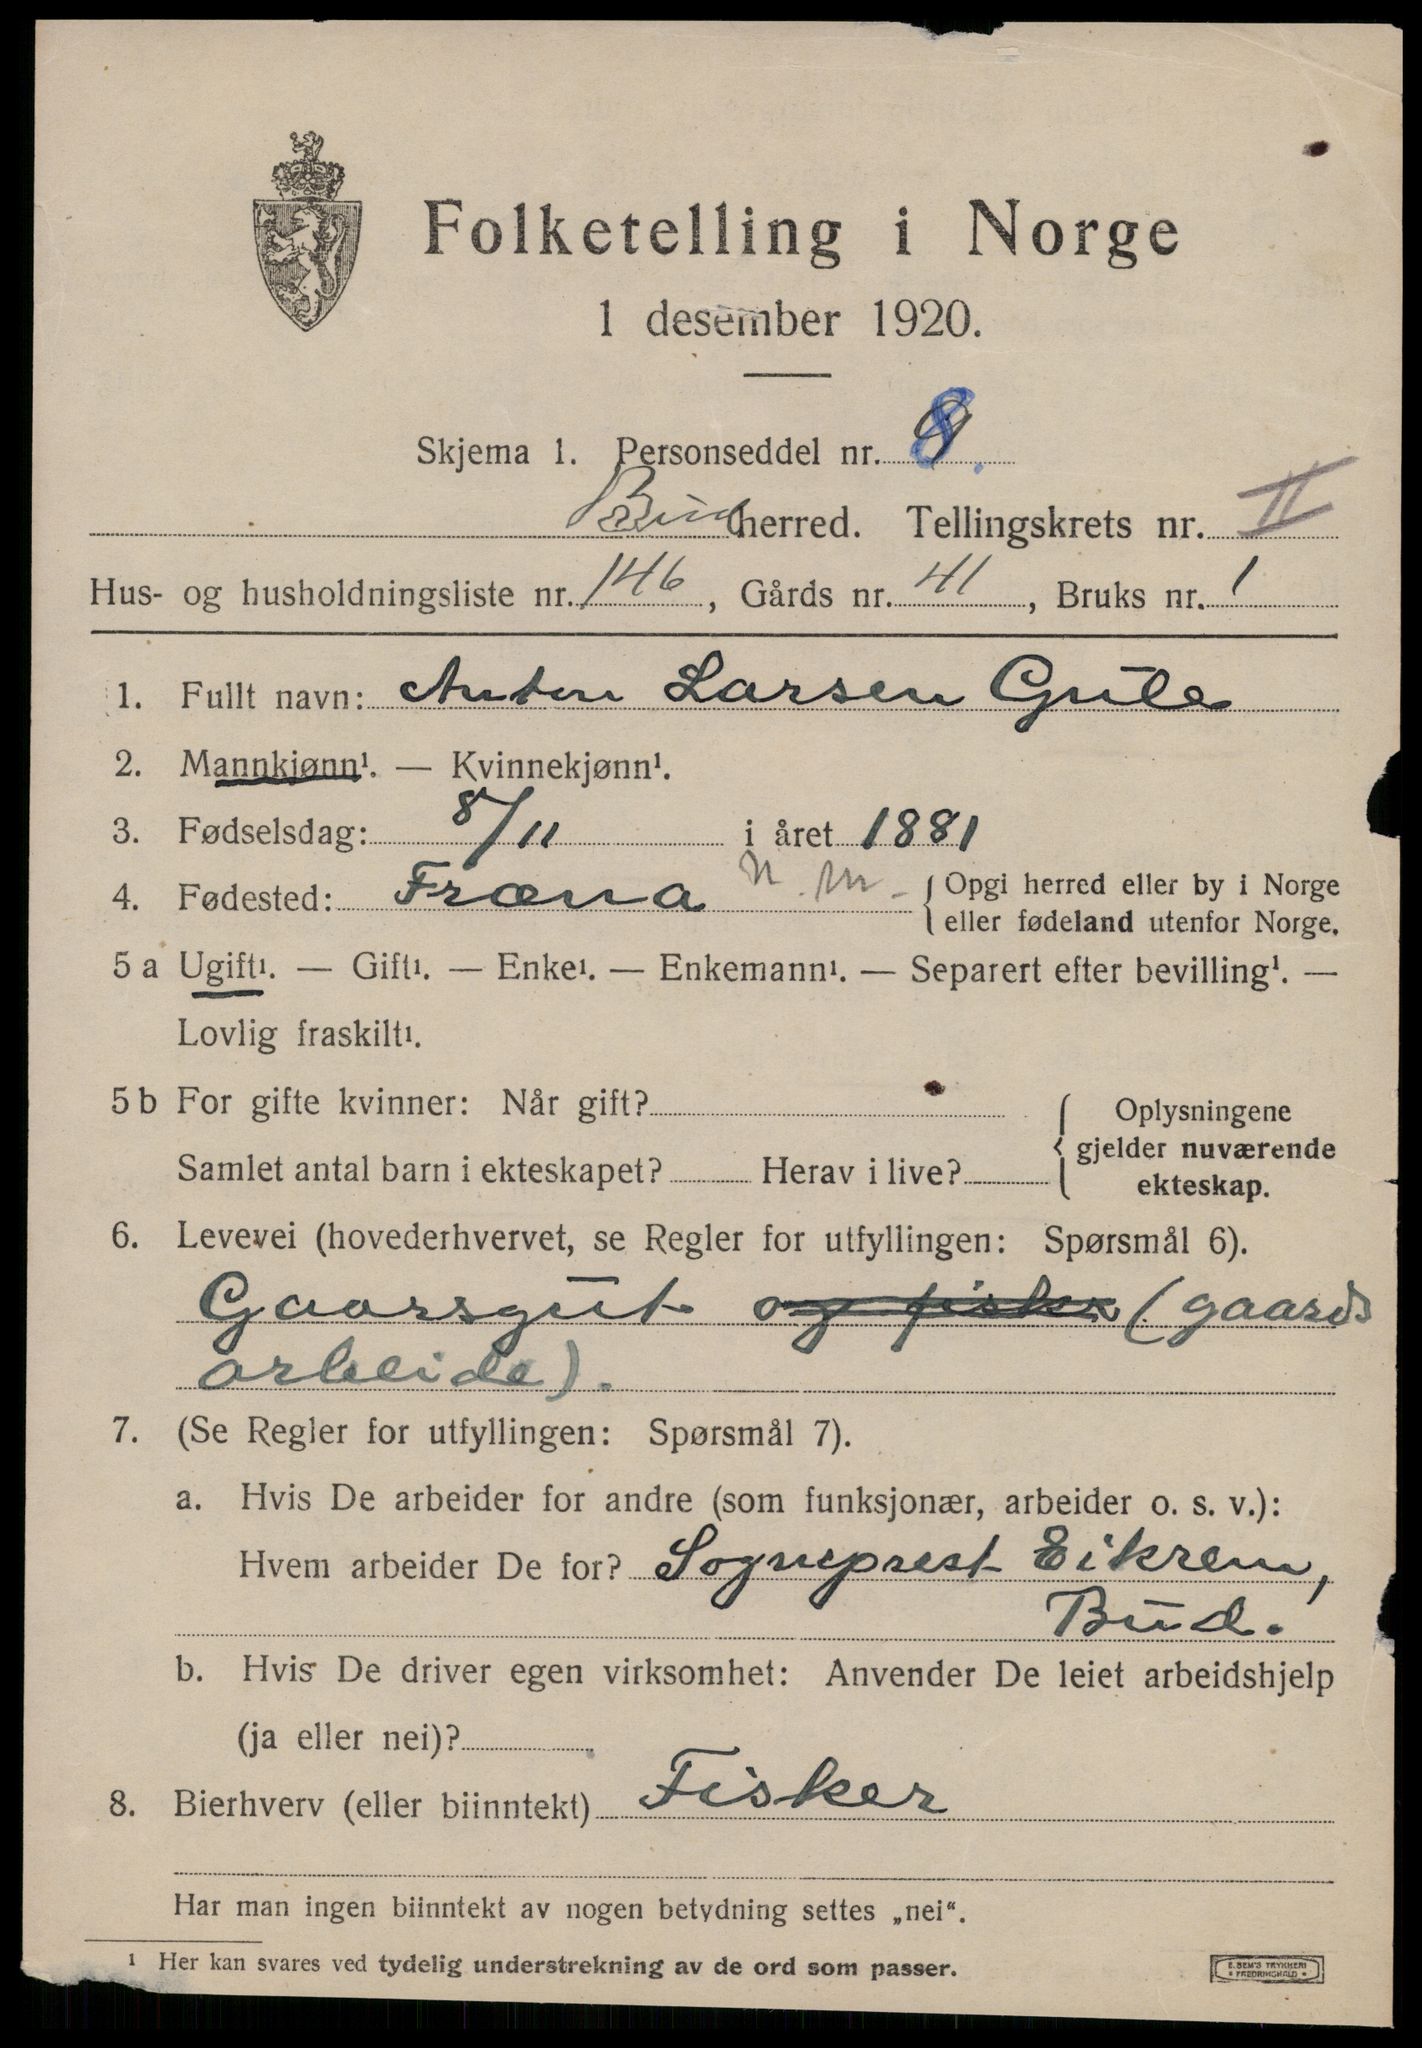 Folketelling i Norge
1 desember 1920.
Skjema 1. Personseddel nr. 8.
Bud herred. Tellingskrets nr. II
Hus- og husholdningsliste nr. 146, Gårds nr. 41, Bruks nr. 1
1. Fullt navn: Anton Larsen Gule
2. Mannkjønn¹. — Kvinnekjønn¹.
3. Fødselsdag: 8/11 i året 1881
4. Fødested: Fræna N. M. Opgi herred eller by i Norge
eller fødeland utenfor Norge.
5 a Ugift¹. — Gift¹. — Enke¹. — Enkemann¹. — Separert efter bevilling¹. —
Lovlig fraskilt¹.
5 b For gifte kvinner: Når gift? Oplysningene
gjelder nuværende
Samlet antal barn i ekteskapet? Herav i live? ekteskap.
6. Levevei (hovederhvervet, se Regler for utfyllingen: Spørsmål 6).
Gaarsgut og fisker (gaards
arbeide).
7. (Se Regler for utfyllingen: Spørsmål 7).
a. Hvis De arbeider for andre (som funksjonær, arbeider o. s. v.):
Hvem arbeider De for? Sogneprest Eikrem,
Bud.
b. Hvis De driver egen virksomhet: Anvender De leiet arbeidshjelp
(ja eller nei)?
8. Bierhverv (eller biinntekt) Fisker
Har man ingen biinntekt av nogen betydning settes „nei“.
¹ Her kan svares ved tydelig understrekning av de ord som passer.
E. SEM'S TRYKKERI
FREDRIKSHALD